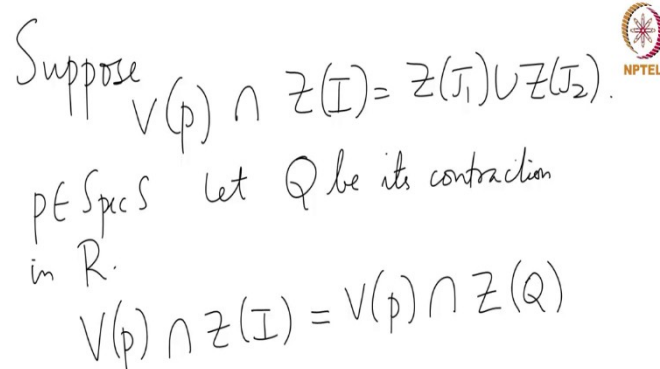 Suppose
V(p) ∩ Z(I) = Z(J₁) ∪ Z(J₂).
p ∈ Spec S Let Q be its contraction
in R.
V(p) ∩ Z(I) = V(p) ∩ Z(Q)
NPTEL